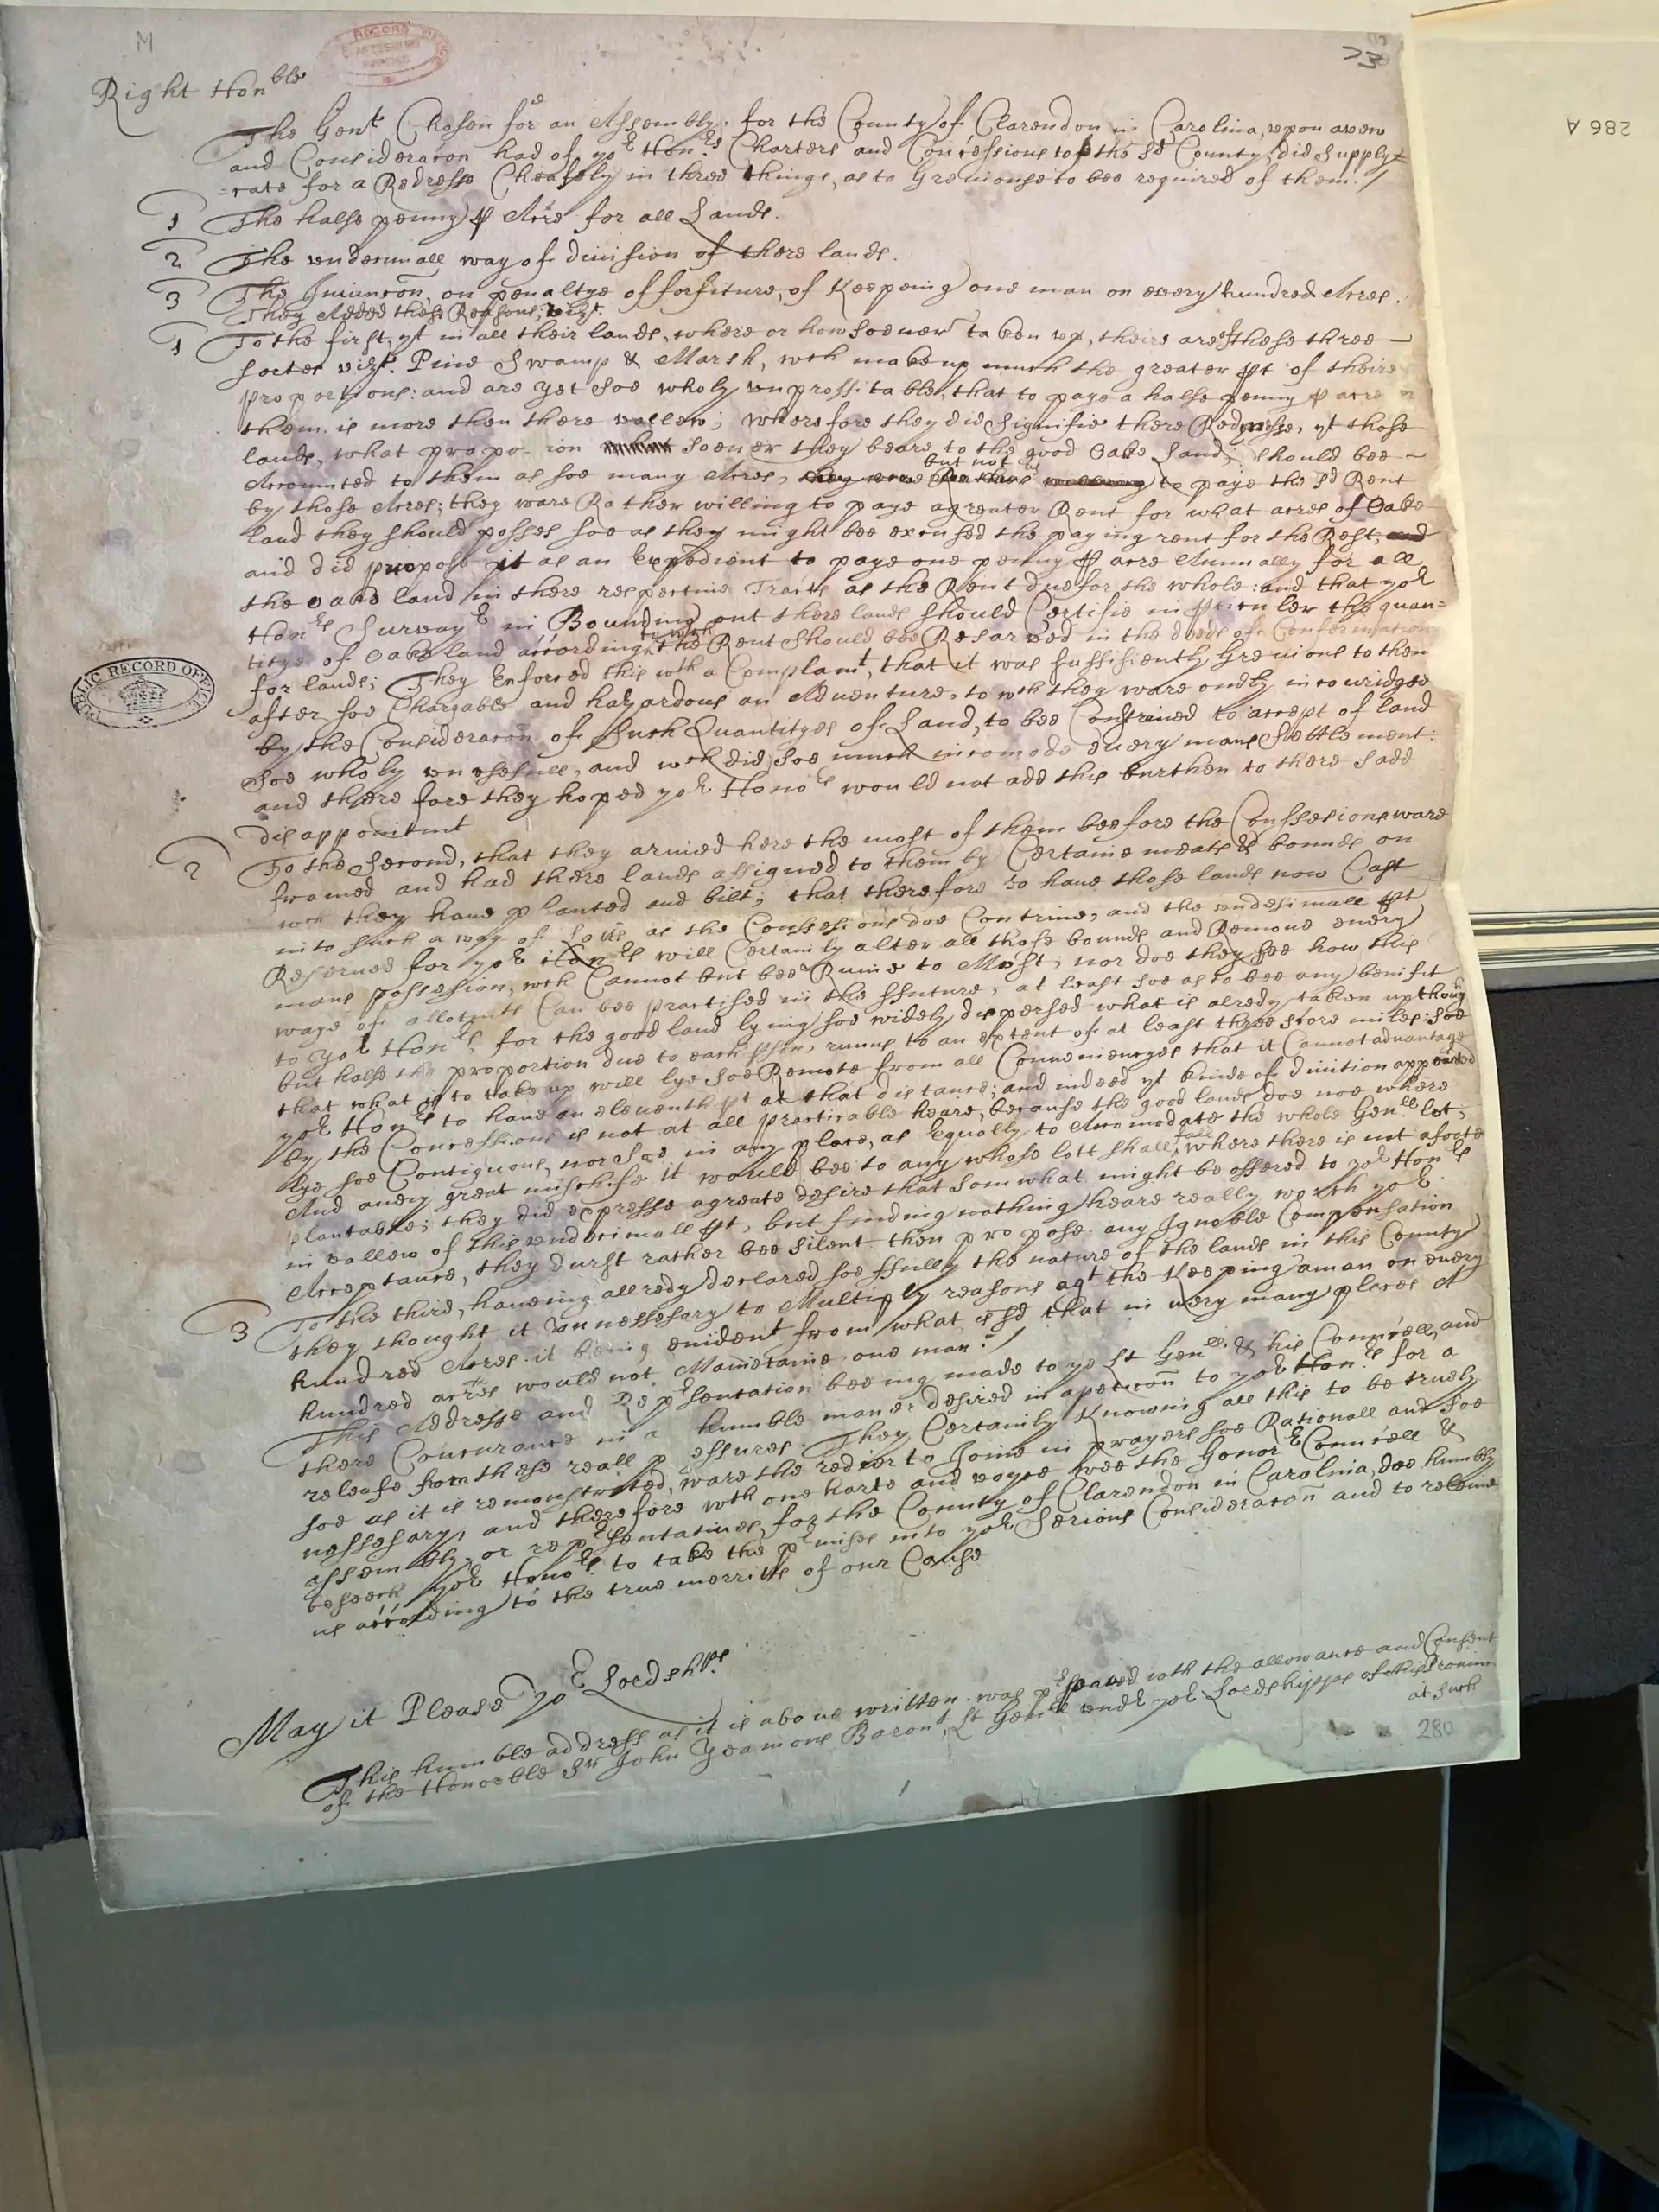 M
RECORD OF
73
286 A
Right Honble
The Gent Chosen for an Assembly for the County of Clarendon in Carolina, upon a vew
and Consideracon had of yor Honrs Charters and Concessions to the sd County, did Supply
=cate for a Redresse Cheafely in three things, as to Greivouse to bee required of them /
1 The halfe penny ꝑ Acre for all Lands.
2 The undecimall way of division of there lands.
3 The Iniuncon, on penaltye of forfiture, of Keepeing one man on every hundred Acres.
They Added these Reasons, vizt.
1 To the first, yt in all their lands, where or howsoever taken up, theire are these three
sortes vizt. Pine Swamp & Marsh, wch make up much the greater ꝑt of theire
proportions: and are yet soe wholy unproffitable, that to paye a halfe penny ꝑ acre
them is more then there vallew; wherefore they did signifie there yt those
lands, what propo ion soever they beare to the good Oake Land, should bee
Accounted to them as soe many Acres, but not to paye the sd Rent
by those Acres; they ware Rather willing to paye a greater Rent for what acres of Oake
land they should posses soe as they might bee excused the paying rent for the Rest, and
and did propose it as an Expedient to paye one penny ꝑ acre Annually for all
the oake land in there respective Tracts as the Rent due for the whole: and that yor
Honrs Surveyr in Bounding out there lands should Certifie in ꝑticuler the quan=
titye of Oake land according to wch the Rent should bee Resarved in the deeds of Confermation
for lands; They Enforced this wth a Complaint, that it was sufficiently Greivous to them
after soe Chargable and hazardous an Adventure, to wch they ware onely incouridged
by the Consideracon of such Quantityes of Land, to bee Constrained to accept of land
soe wholy unusefull, and wch did soe much incomode every mans Settlement:
and therefore they hoped yor Honors would not add this burthen to there sadd
disappointmt
2 To the Second, that they arived here the most of them beefore the Conssesions ware
framed and had there lands assigned to them by Certaine meats & bounds on
wch they have planted and bilt; that therefore to have those lands now Cast
into such a way of Lotts as the Conssesions doe Contrive, and the undesimall ꝑt
Reserved for yor Honrs will Certainly alter all those bounds and Remove every
mans possession, wch Cannot but bee Ruine to Most; nor doe they see how this
waye of allotmts Can bee practised in the ffuture, at least soe as to bee any benifit
to yor Honrs, for the good land lying soe widely dispersed what is alredy taken up though
but halfe the proportion due to each runns to an extent of at least three score miles: soe
that what is to take up will lye soe Remote from all Conveniencyes that it Cannot advantage
yor Honrs to have an eleventh ꝑt at that distance; and indeed yt kinde of division appointed
by the Concessions is not at all practicable heare, because the good lands doe noe where
lye soe Contiguous, nor soe in any place, as Equally to Accomodate the whole Genll lot;
And a very great mischife it would bee to any whose lott shall fall where there is not a foote
plantable; they did expresse a greate desire that somwhat might be offered to yor Honrs
in vallew of this undecimall ꝑt, but finding nothing heare really worth yor
Acceptance, they durst rather bee silent then propose any Ignoble Compensation
3 To the third, haveing allredy declared soe ffully the nature of the lands in this County
they thought it unnessesary to Multiply reasons agt the Keeping a man on every
hundred Acres it being evident from what is sd that in very many places A
hundred acres would not Maintaine one man /
This Addresse and Reprsentation beeing made to ye Lt Genll & his Councell, and
there Concurance in a humble maner desired in a peticon to yor Honrs for a
release from these reall pressures. They Certainly Knowing all this to be truely
soe as it is remonstrated, ware the redier to Joine in prayers soe Rationall and soe
nessesary, and therefore wth one harte and voyce wee the Gonor Councell &
assembly, or reprsentatives, for the County of Clarendon in Carolina, doe humbly
beseech yor Honors to take the prmises into yor Serious Consideracon and to releive
us according to the true merritts of our Cause
May it Please yor Lordshps
This humble address as it is above written was with the allowance and Consent
of the Honorble Sr John Yeamons Baront, Lt Genll undr yor Lordshipps of this
at such
280
PUBLIC RECORD OFFICE